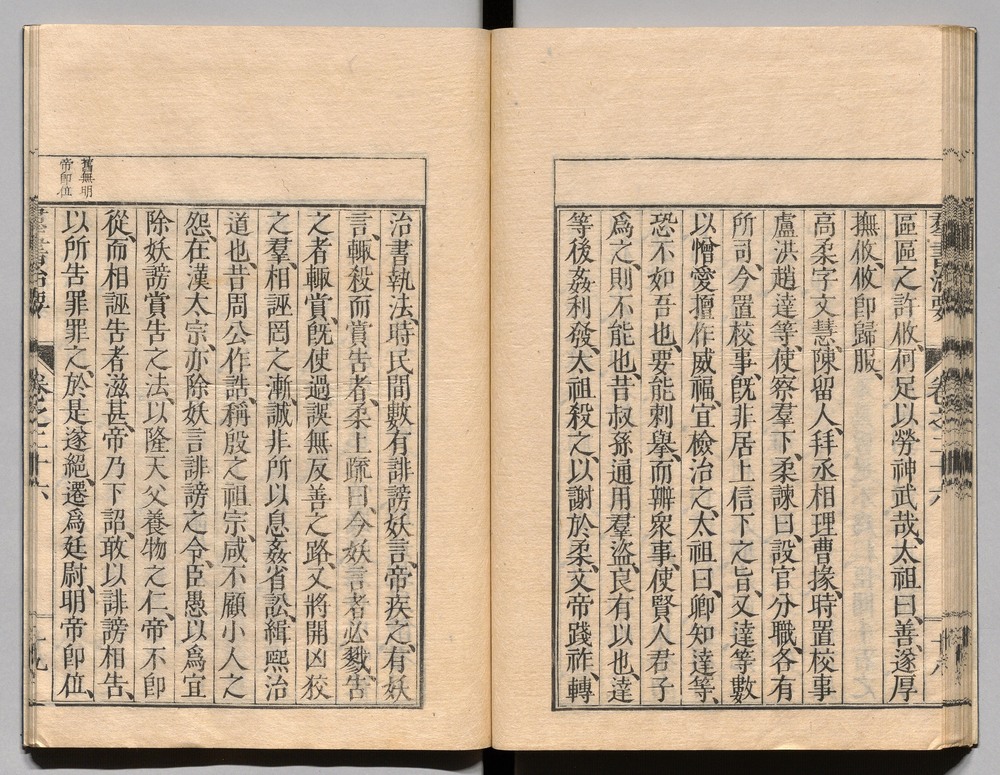 區區之許攸、何足以勞神武哉、太祖曰、善、遂厚
撫攸、攸卽歸服、
高柔字文慧、陳留人、拜丞相理曹掾、時置校事
盧洪趙達等、使察羣下、柔諫曰、設官分職、各有
所司、今置校事、旣非居上信下之旨、又達等數
以憎愛擅作威福、宜檢治之、太祖曰、卿知達等、
恐不如吾也、要能刺擧、而辦衆事、使賢人君子
爲之、則不能也、昔叔孫通用羣盜、良有以也、達
等後姦利發、太祖殺之、以謝於柔、文帝踐祚、轉
羣書治要
卷之二十六
十八
治書執法、時民間數有誹謗妖言、帝疾之、有妖
言、輙殺而賞告者、柔上疏曰、今妖言者必戮、告
之者輙賞、旣使過誤無反善之路、又將開凶狡
之羣、相誣罔之漸、誠非所以息姦省訟、緝熙治
道也、昔周公作誥、稱殷之祖宗、咸不顧小人之
怨、在漢太宗、亦除妖言誹謗之令、臣愚以爲宜
除妖謗賞告之法、以隆天父養物之仁、帝不卽
從、而相誣告者滋甚、帝乃下詔、敢以誹謗相告、
以所告罪罪之、於是遂絕、遷爲廷尉、明帝卽位、
舊無明
帝卽位
羣書治要
卷之二十六
十九